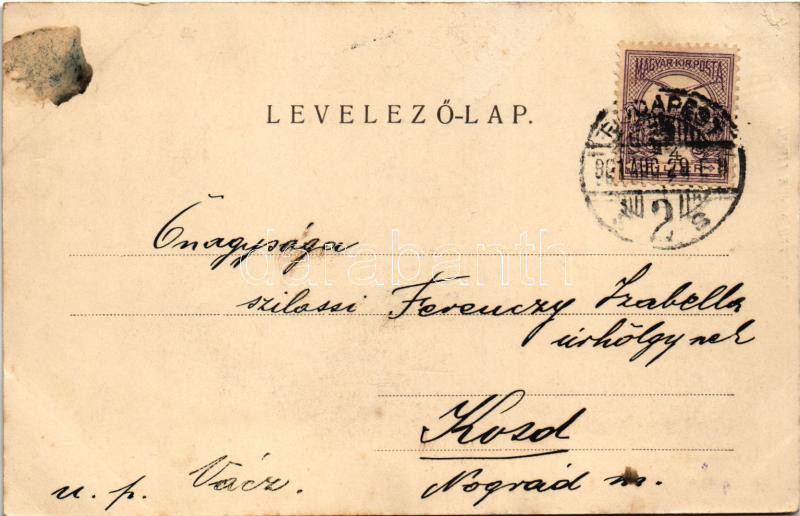 MAGYAR KIR. POSTA
LEVELEZŐ-LAP.
BUDAPEST
901 AUG. 29
2
Őnagysága
darabanth
szilassi Ferenczy Izabella
úrhölgynek
Kosd
u. p. Vácz. Nográd m.